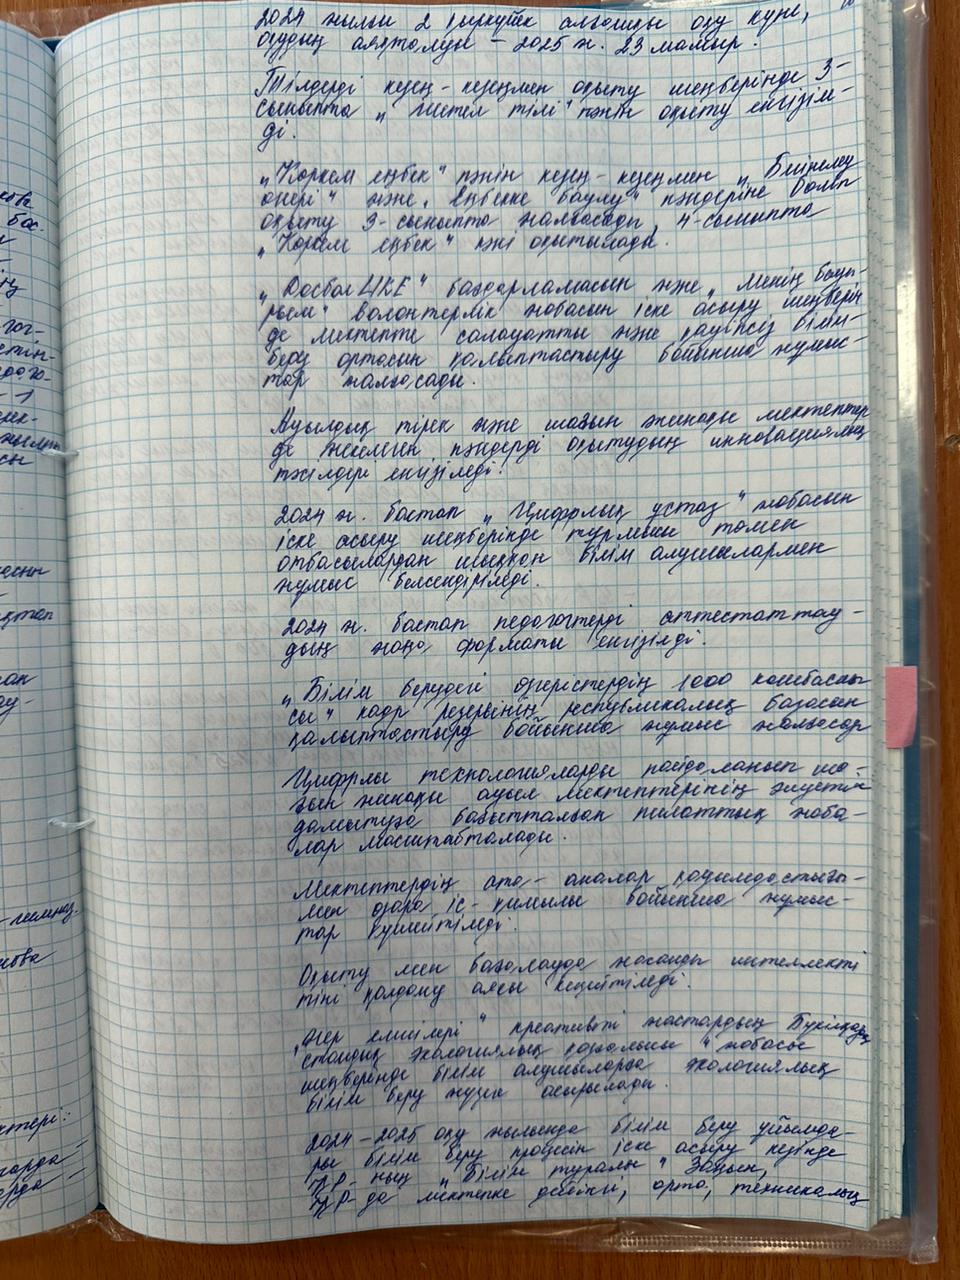 2024 жылы 2 қыркүйек алғашқы оқу күні,
оқудың аяқталуы – 2025 ж. 23 мамыр.
Тілдерді кезең-кезеңмен оқыту шеңберінде 3-
сыныпта „шетел тілі" пәнін оқыту енгізіл-
ді.
„Көркем еңбек" пәнін кезең-кезеңмен „Бейнелеу
өнері" және „Еңбекке баулу" пәндеріне бөліп
оқыту 3-сыныпта жалғасады, 4-сыныпта
„Көркем еңбек" пәні оқытылады.
„ДосболLIKE" бағдарламасын және „Менің бауы-
рым" волонтерлік жобасын іске асыру шеңберін
де мектепте салауатты және қауіпсіз білім
беру ортасын қалыптастыру бойынша жұмыс-
тар жалғасады.
Ауылдық тірек және шағын жинақы мектептер
де жекелеген пәндерді оқытудың инновациялық
тәсілдері енгізіледі.
2024 ж. бастап „Цифрлық ұстаз" жобасын
іске асыру шеңберінде тұрмысы төмен
отбасылардан шыққан білім алушылармен
жұмыс белсендіріледі.
2024 ж. бастап педагогтерді аттестаттау-
дың жаңа форматы енгізілді.
„Білім берудегі өзгерістердің 1000 көшбасшы
сы" кадр резервінің республикалық базасын
қалыптастыру бойынша жұмыс жалғасар
Цифрлы технологияларды пайдаланып ша-
ғын жинақы ауыл мектептерінің әлеуетін
дамытуға бағытталған пилоттық жоба-
лар масштабталады.
Мектептердің ата-аналар қауымдастығы-
мен өзара іс-қимылы бойынша жұмыс-
тар күшейтіледі.
Оқыту мен бағалауда жасанды интеллекті
тіні қолдану аясы кеңейтіледі.
„Жер елшілері" креативті жастардың Бүкілқазақ
стандық экологиялық қозғалысы" жобасы
шеңберінде білім алушыларға экологиялық
білім беру жүзеге асырылады.
2024–2025 оқу жылында білім беру ұйымда-
ры білім беру процесін іске асыру кезінде
ҚР-ның „Білім туралы" Заңын,
ҚР-да мектепке дейінгі, орта, техникалық